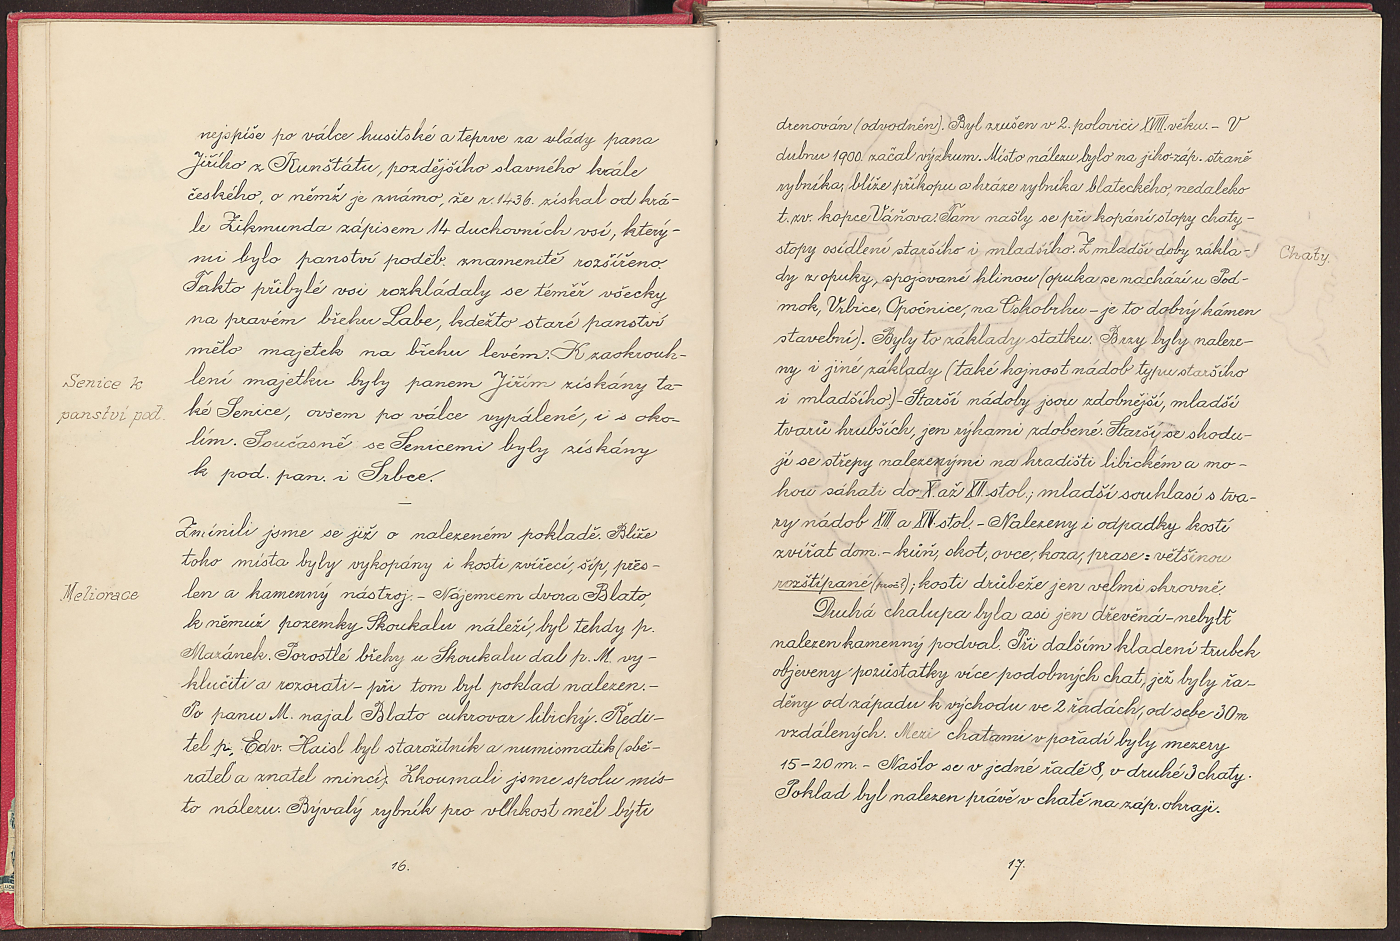 nejspíše po válce husitské a teprve za vlády pana
Jiřího z Kunštátu, pozdějšího slavného krále
českého, o němž je známo, že r. 1436. získal od krá-
le Zikmunda zápisem 14 duchovních vsí, který-
mi bylo panství poděb. znamenitě rozšířeno.
Takto přibylé vsi rozkládaly se téměř všecky
na pravém břehu Labe, kdežto staré panství
mělo majetek na břehu levém. K zaokrouh-
lení majetku byly panem Jiřím získány ta-
ké Senice, ovšem po válce vypálené, i s oko-
lím. Současně se Senicemi byly získány
k pod. pan. i Srbce.
Senice k
panství pod.
Zmínili jsme se již o nalezeném pokladě. Blíže
toho místa byly vykopány i kosti zvířecí, šíp, přes-
len a kamenný nástroj. – Nájemcem dvora Blato,
k němuž pozemky Skoukalu náleží, byl tehdy p.
Mazánek. Porostlé břehy u Skoukalu dal p. M. vy-
klučiti a rozorati – při tom byl poklad nalezen. –
Po panu M. najal Blato cukrovar libický. Ředi-
tel p. Edv. Haisl byl starožitník a numismatik (obě-
ratel a znatel mincí). Zkoumali jsme spolu mís-
to nálezu. Bývalý rybník pro vlhkost měl býti
Meliorace
16.
drenován (odvodněn). Byl zrušen v 2. polovici XVIII. věku. – V
dubnu 1900 začal výzkum. Místo nálezu bylo na jiho-záp. straně
rybníka, blíže příkopu a hráze rybníka blateckého, nedaleko
t. zv. kopce Váňova. Tam našly se při kopání stopy chaty –
stopy osídlení staršího i mladšího. Z mladší doby zákla-
dy z opuky, spojované hlinou (opuka se nachází u Pod-
mok, Vrbice, Opočnice, na Oškobrhu – je to dobrý kámen
stavební). Byly to základy statku. Brzy byly naleze-
ny i jiné základy (také hojnost nádob typu staršího
i mladšího) – Starší nádoby jsou zdobnější, mladší
tvarů hrubších, jen rýhami zdobené. Starší se shodu-
jí se střepy nalezenými na hradišti libickém a mo-
hou sáhati do X. až XII. stol.; mladší souhlasí s tva-
ry nádob XIII a XIV. stol. – Nalezeny i odpadky kostí
zvířat dom. – kůň, skot, ovce, koza, prase = většinou
rozštípané (proč?); kosti drůbeže jen velmi skrovně.
Druhá chalupa byla asi jen dřevěná – nebylť
nalezen kamenný podval. Při dalším kladení trubek
objeveny pozůstatky více podobných chat, jež byly řa-
děny od západu k východu ve 2 řadách, od sebe 30 m
vzdálených. Mezi chatami v pořadí byly mezery
15 – 20 m. – Našlo se v jedné řadě 8, v druhé 3 chaty.
Poklad byl nalezen právě v chatě na záp. okraji.
Chaty.
17.